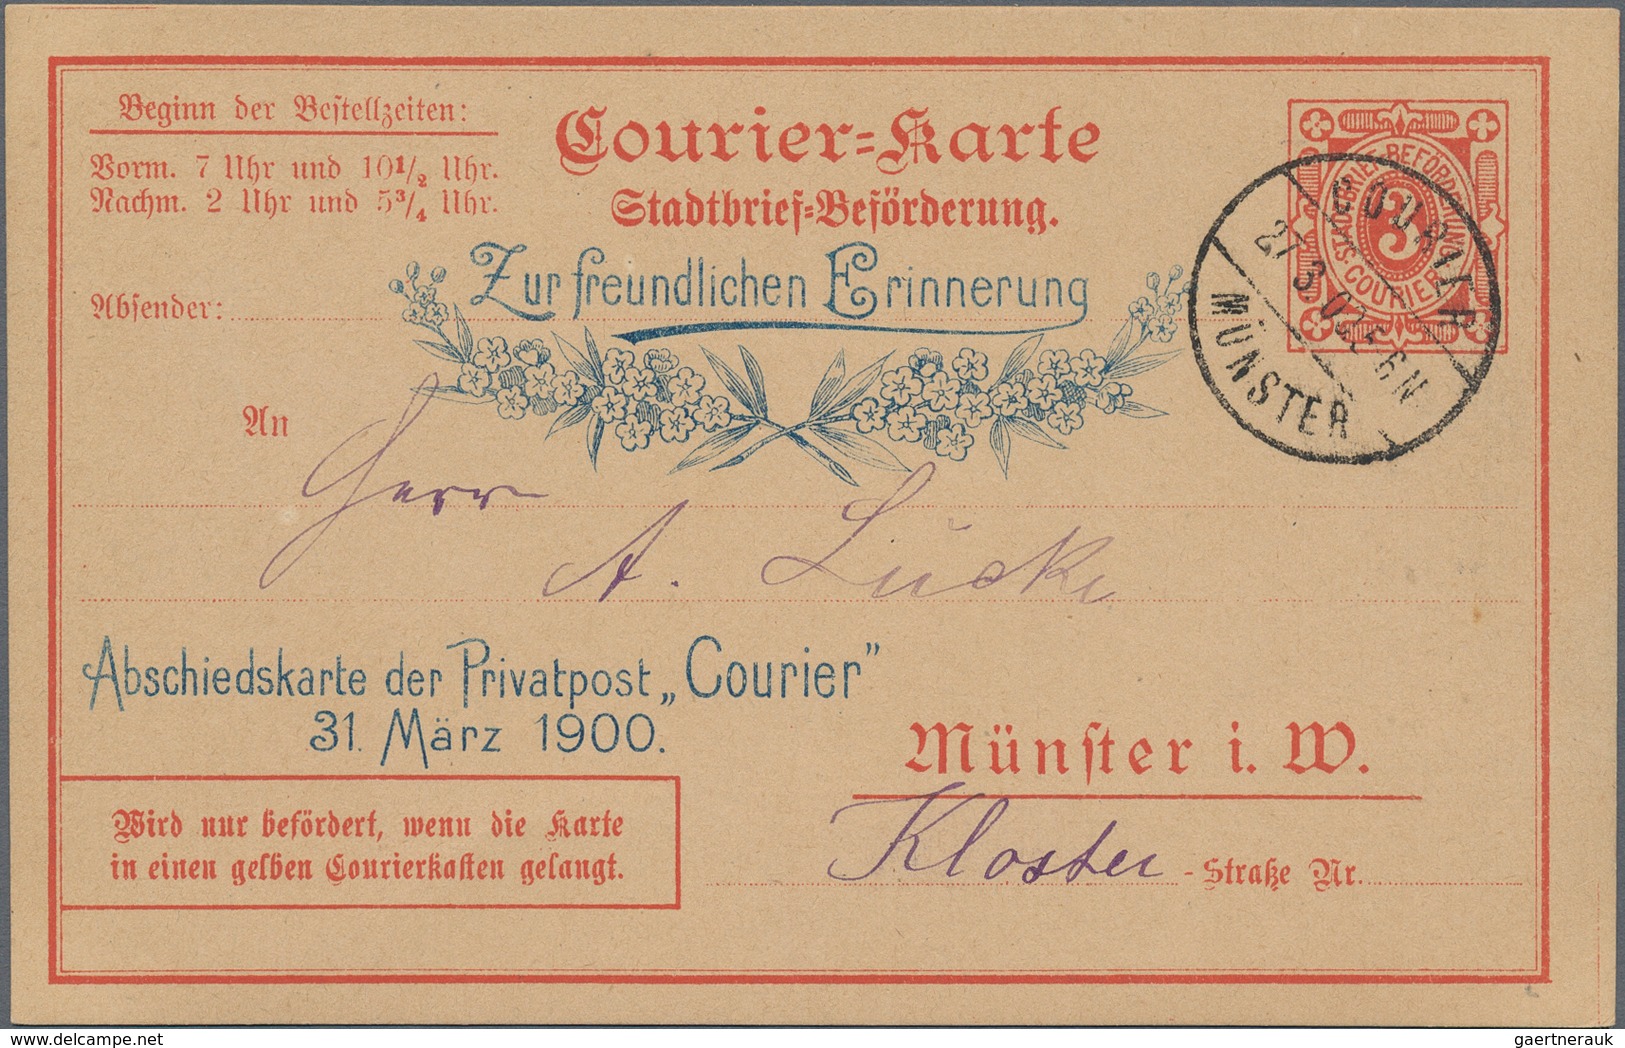 Beginn der Bestellzeiten:
Vorm. 7 Uhr und 10½ Uhr.
Nachm. 2 Uhr und 5¾ Uhr.
Courier=Karte
Stadtbrief=Beförderung.
STADTBRIEF-BEFÖRDERUNG
3
COURIER
COURIER
27 3
6N
MÜNSTER
Zur freundlichen Erinnerung
Absender:
An
Herr
A. Lücke
Abschiedskarte der Privatpost „Courier”
31. März 1900.
Münster i. W.
Kloster - Straße Nr.
Wird nur befördert, wenn die Karte
in einen gelben Courierkasten gelangt.
gaertnerauk